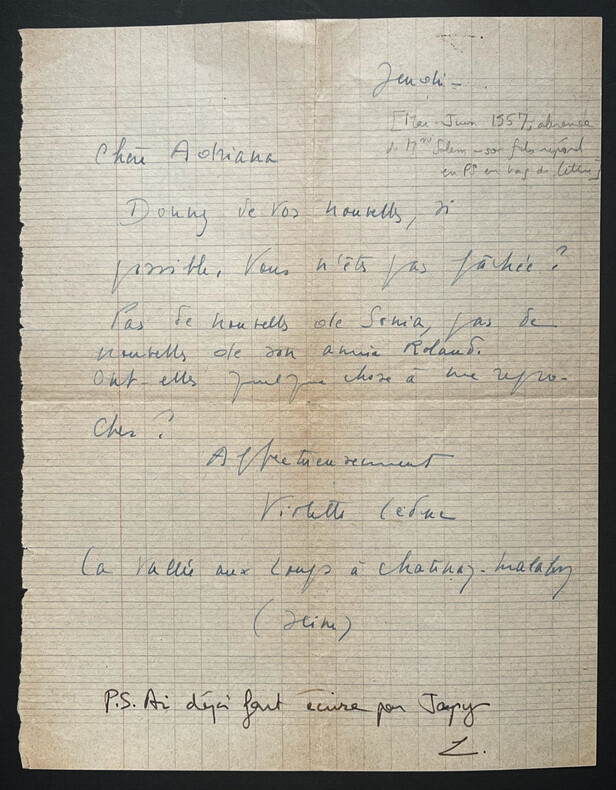 Jeudi -
[Mai-Juin 1957, absence
de Mme Salem - son fils répond
en PS en bas de lettre]
Chère Adriana
Donnez de vos nouvelles, si
possible. Vous n'êtes pas fâchée ?
Pas de nouvelles de Sonia, pas de
nouvelles de son amie Roland.
Ont-elles quelque chose à me repro-
cher ?
Affectueusement
Violette Leduc
La Vallée aux Loups à Chatenay-Malabry
(Seine)
P.S. Ai déjà fait écrire par Japy
L.